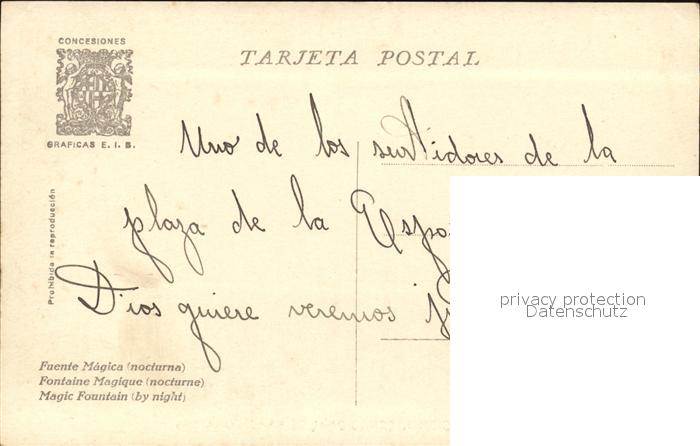 CONCESIONES
GRAFICAS E. I. B.
TARJETA POSTAL
Uno de los surtidores de la
plaza de la
Dios quiere veremos
Prohibida la reproducción
privacy protection
Datenschutz
Fuente Mágica (nocturna)
Fontaine Magique (nocturne)
Magic Fountain (by night)